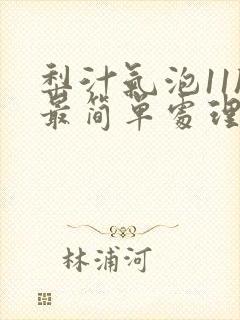 梨汁氣泡11P
最简單處理
林浦河